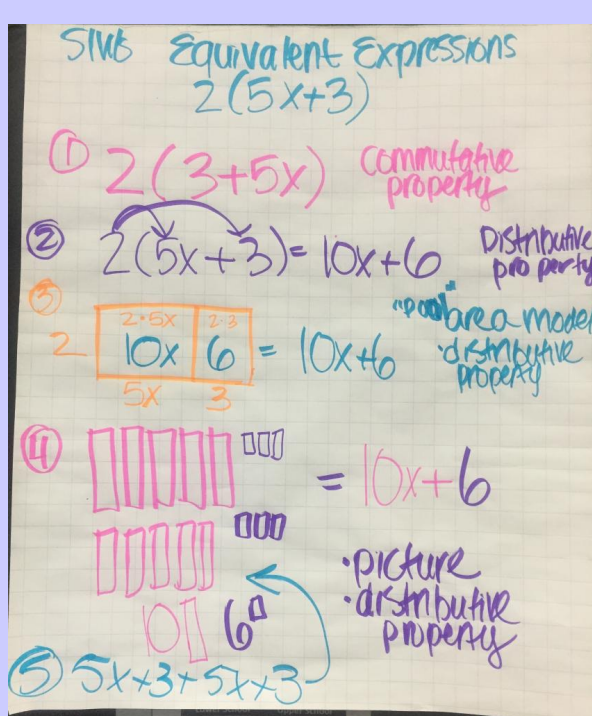 Equivalent Expressions
2(5x+3)
① 2(3+5x) Commutative property
② 2(5x+3)=10x+6 Distributive property
③
2·5x 2·3
2 10x 6 = 10x+6
5x 3
"pool" area model
·distributive property
④ = 10x+6
10 6
·picture
·distributive property
⑤ 5x+3+5x+3